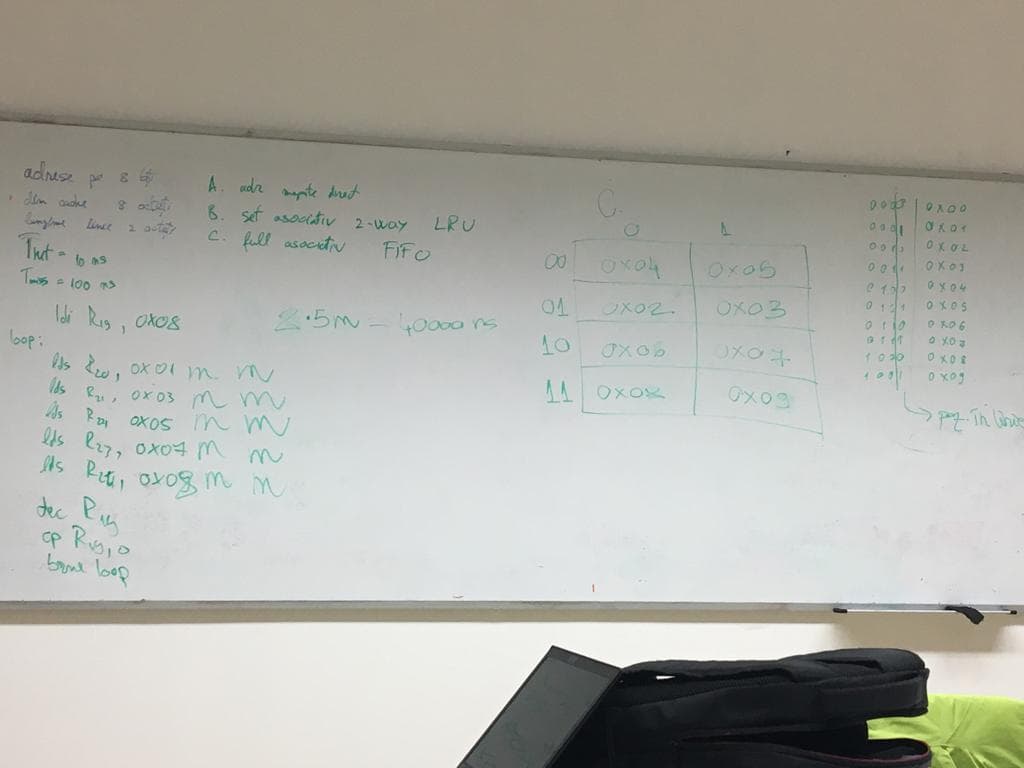 adrese pe 8 biți
dim cache 8 octeți
lungime linie 2 octeți
Thit = 10 ns
Tmiss = 100 ns
A. adr mapate direct
B. set asociativ 2-way LRU
C. full asociativ FIFO
ldi R19, 0x08
8·5m - 40000 ns
loop:
lds R20, 0x01 m m
lds R21, 0x03 m m
lds 0x05 m m
lds R23, 0x07 m m
lds R24, 0x08 m m
dec R19
cp R19, 0
brne loop
C.
0 1
00 0x04 0x05
01 0x02 0x03
10 0x06 0x07
11 0x09
0x00
0001 0x01
0x02
0011 0x03
0100 0x04
0101 0x05
0110 0x06
0111 0x07
1000 0x08
1001 0x09
poz. în linie